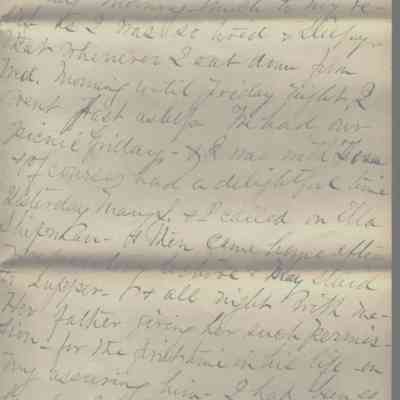 morning much to my re-
as I was so tired & sleepy
that whenever I sat down from
Wed. morning until Friday night, I
went fast asleep. We had our
picnic Friday - & I was with
& of course, had a delightful time
Yesterday & I called on Ella
& then came home after
May staid
to supper - & all night with me -
Her father giving her such permis-
sion - for the first time in his life - on
my assuring him - I had been so